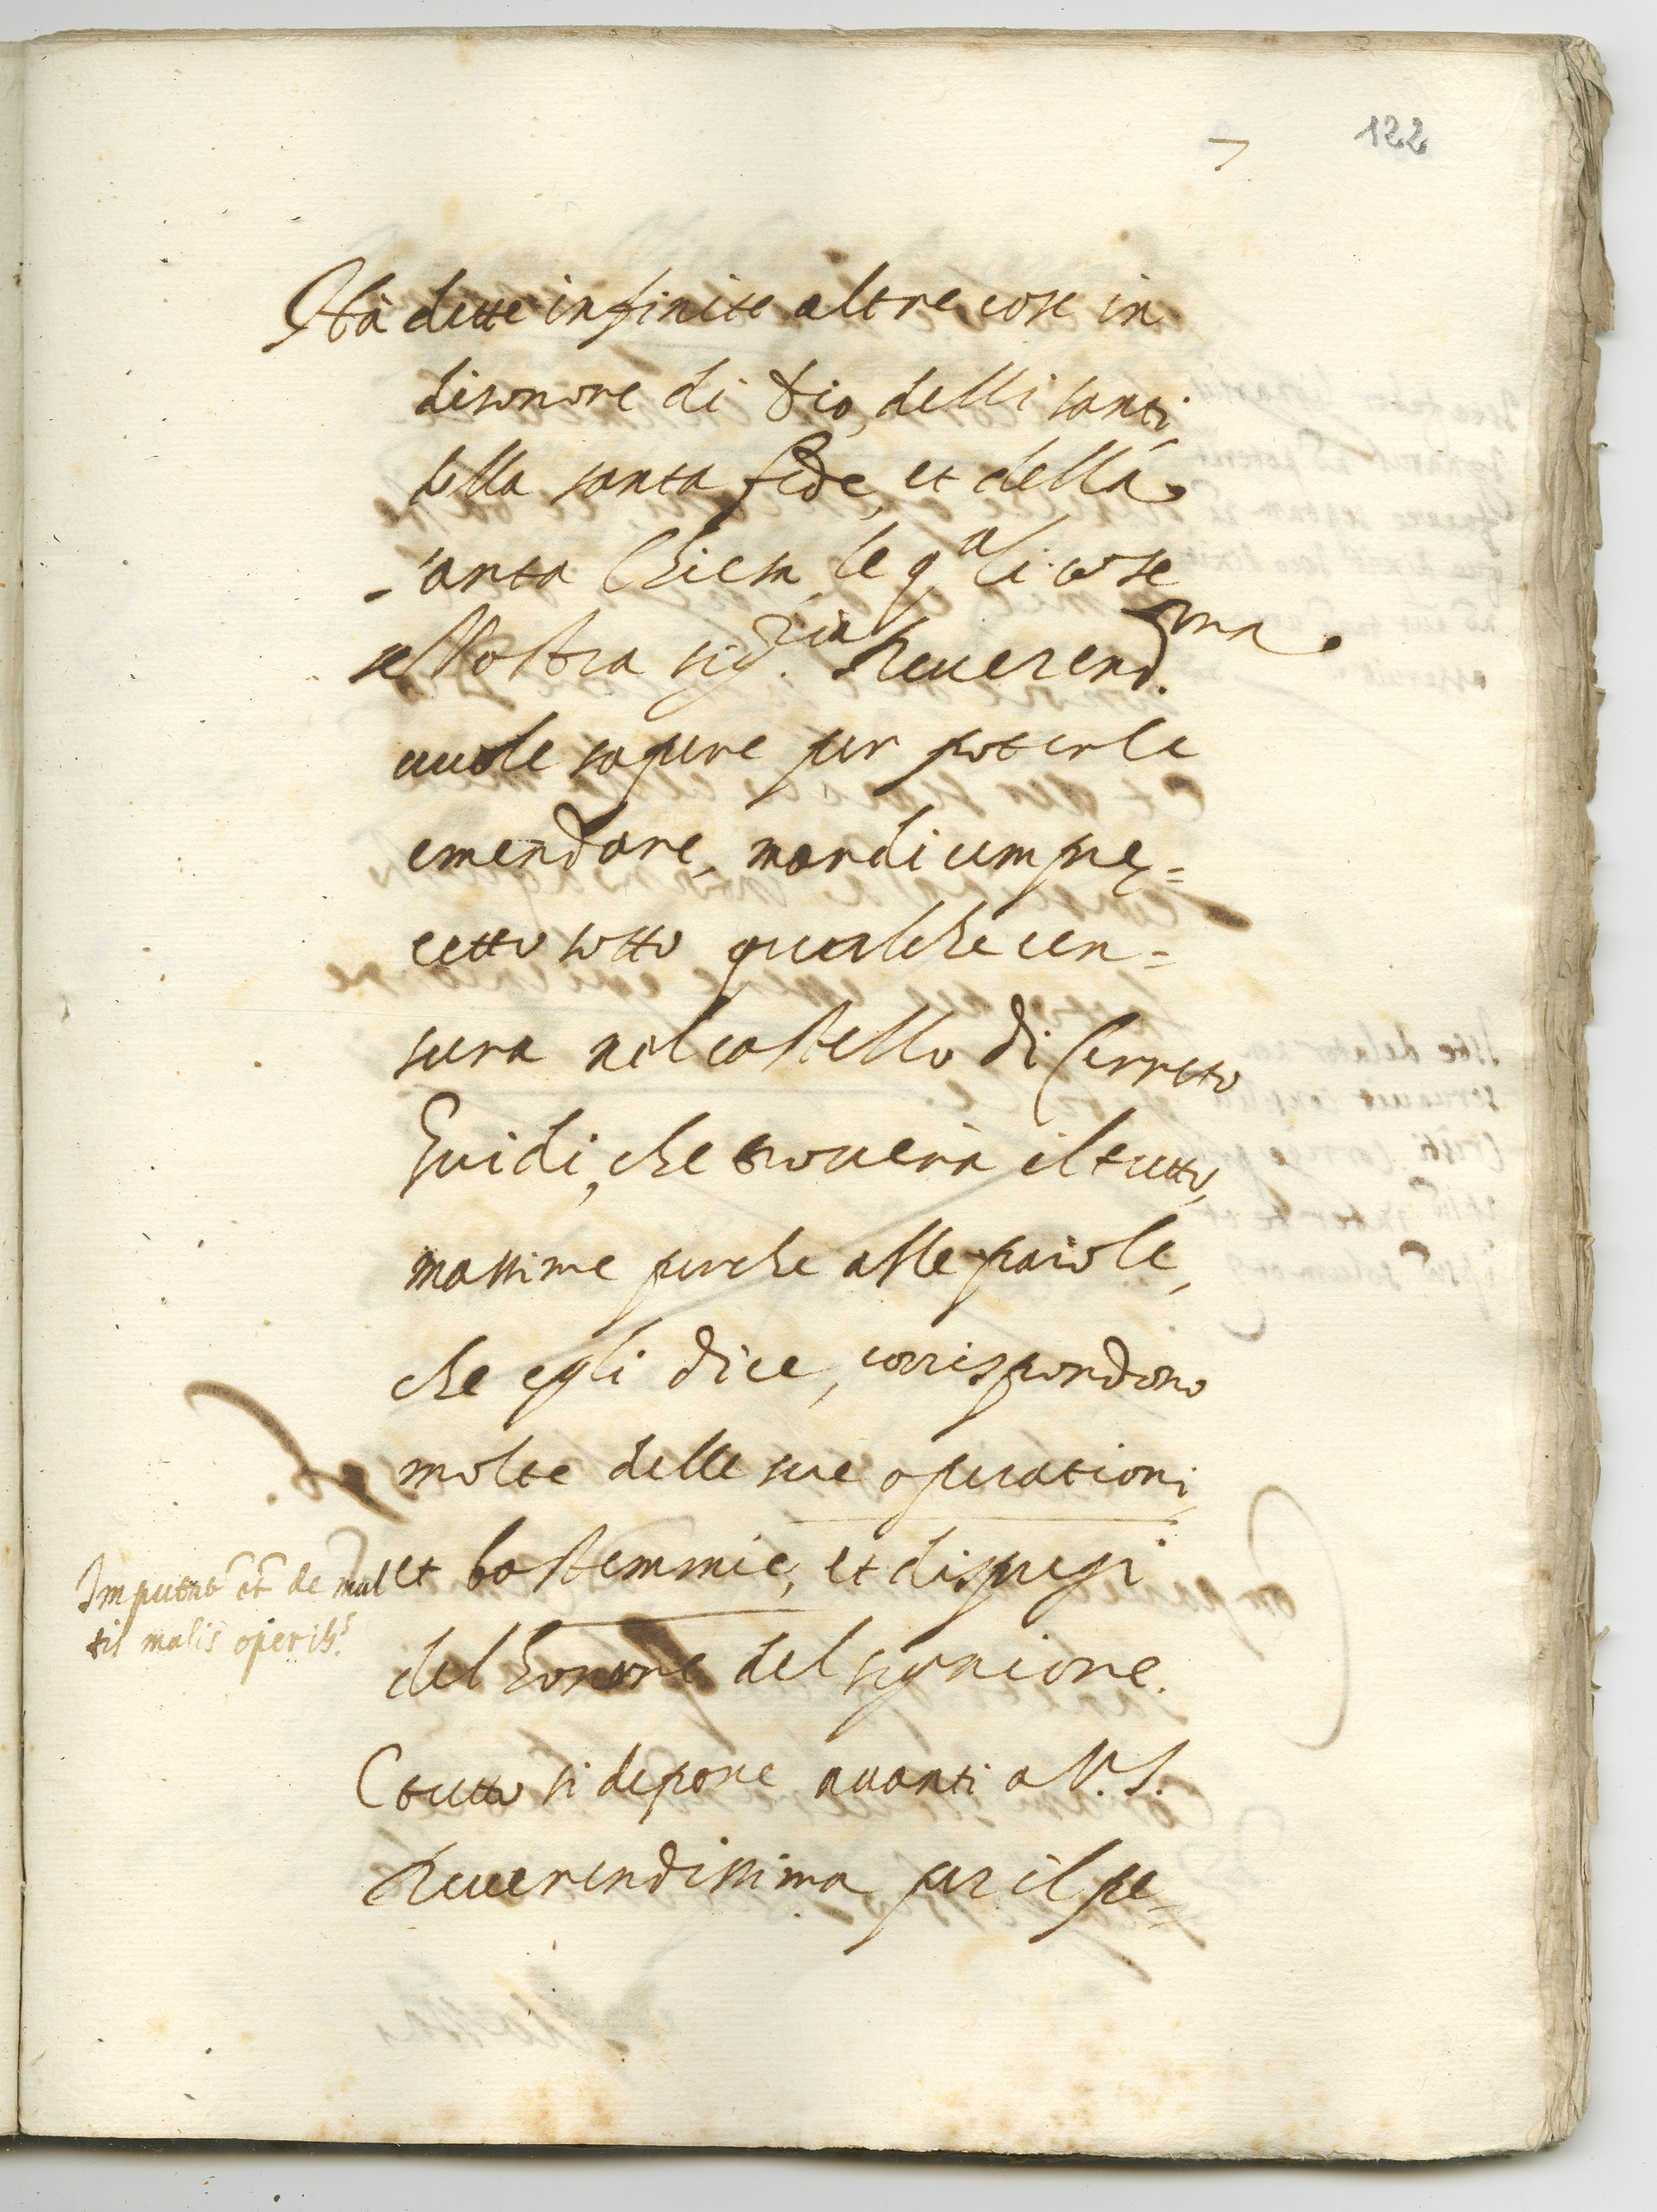 7
122
Hà dette infinite altre cose in
disonore di Dio, delli santi,
della santa fede, et della
santa Chiesa, le q.ali cose
se Vostra sig.ria Reuerend.ma
uuole sapere per poterle
emendare, mandi um pre=
cetto sotto qualche cen=
sura nel castello di Cerreto
Guidi, che trouerà il tutto,
massime perche alle parole,
che egli dice, corrispondono
molte delle sue operationi,
et bastemmie, et dispregi
del honore del signiore.
E tutto si depone auanti a V. S.
Reuerendissima per il pe=
Imputat.r et de mul
tis malis operib.s